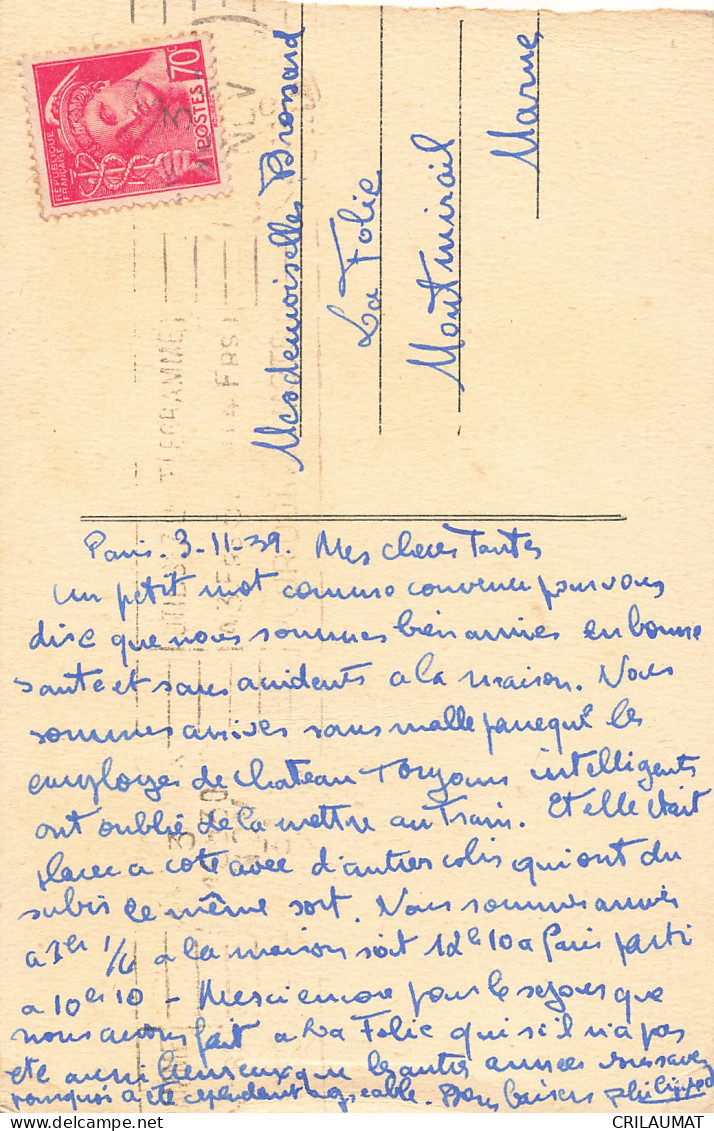 RÉPUBLIQUE
FRANÇAISE
70c
POSTES
Mesdemoiselles Brossard
La Folie
Montmirail
Marne
Paris. 3-11-39. Mes cheres Tantes
un petit mot comme convenu pour vous
dire que nous sommes bien arrives en bonne
sante et sans accidents a la maison. Nous
sommes arrives sans malle parceque les
employes de Chateau intelligents
ont oublie de la mettre au Train. Et elle etait
placee a cote avec d'autres colis qui ont du
subir le même sort. Nous sommes arrives
a 1hr 1/4 a la maison soit 12h10 a Paris parti
a 10h10 - Merci encore pour le sejour que
nous avons fait a La Folie qui s'il n'a pas
ete aussi heureux que les autres annees vous savez
pourquoi a ete cependant agreable. Bons baisers Philippe
CRILAUMAT